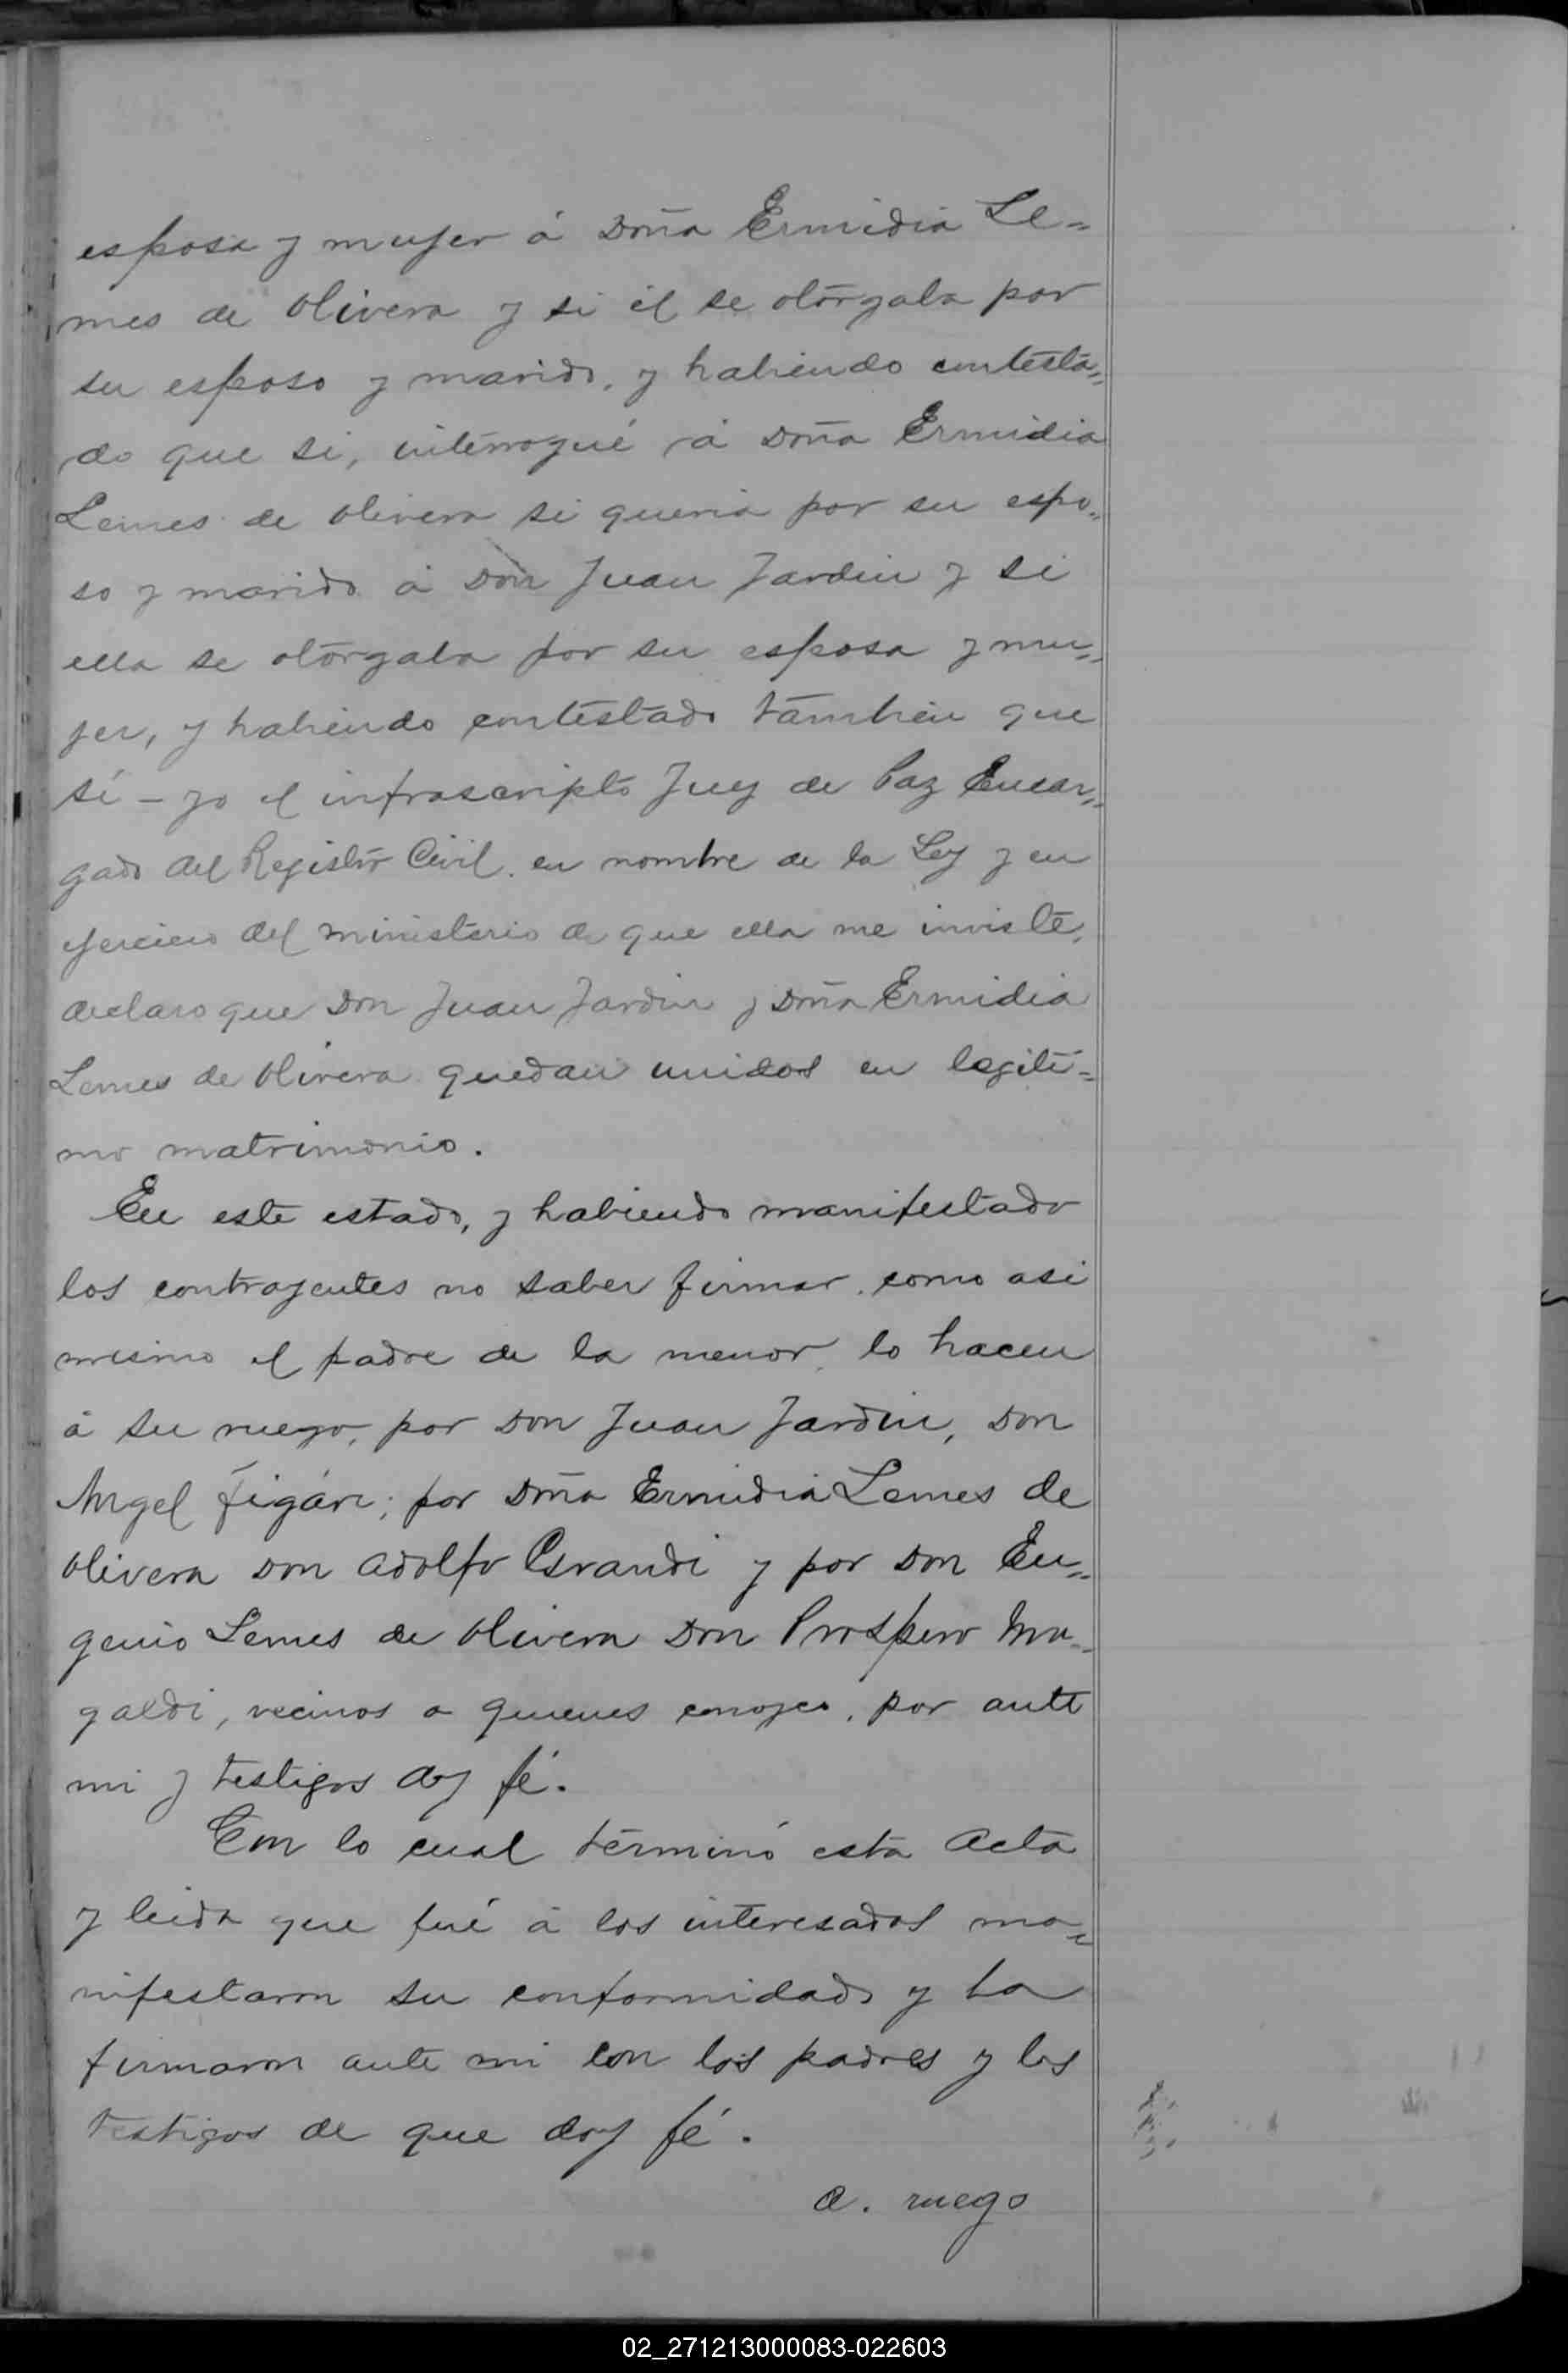 esposa y mujer á Doña Ermidia Le=
mes de Olivera y si él se otorgaba por
su esposo y marido, y habiendo contesta„
do que si, interrogué á Doña Ermidia
Lemes de Olivera si queria por su espo„
so y marido á Don Juan Jardin y si
ella se otorgaba por su esposa y mu„
jer, y habiendo contestado tambien que
sí - yo el infrascripto Juez de Paz Encar„
gado del Registro Civil. en nombre de la Ley y en
ejercicio del ministerio de que ella me inviste,
declaro que Don Juan Jardin y Doña Ermidia
Lemes de Olivera quedan unidos en legiti=
mo matrimonio.
En este estado, y habiendo manifestado
los contrayentes no saber firmar, como asi
mismo el padre de la menor, lo hacen
á su ruego, por Don Juan Jardin, Don
Angel Figari; por Doña Ermidia Lemes de
Olivera Don Adolfo y por Don Eu„
genio Lemes de Olivera Don Prospero Ma„
galdi, vecinos a quienes conozco, por ante
mi y testigos doy fé.
Con lo cual terminó esta Acta
y leida que fué á los interesados ma„
nifestaron su conformidad y la
firmaron ante mi con los padres y los
testigos de que doy fé.
a. ruego
02_271213000083-022603